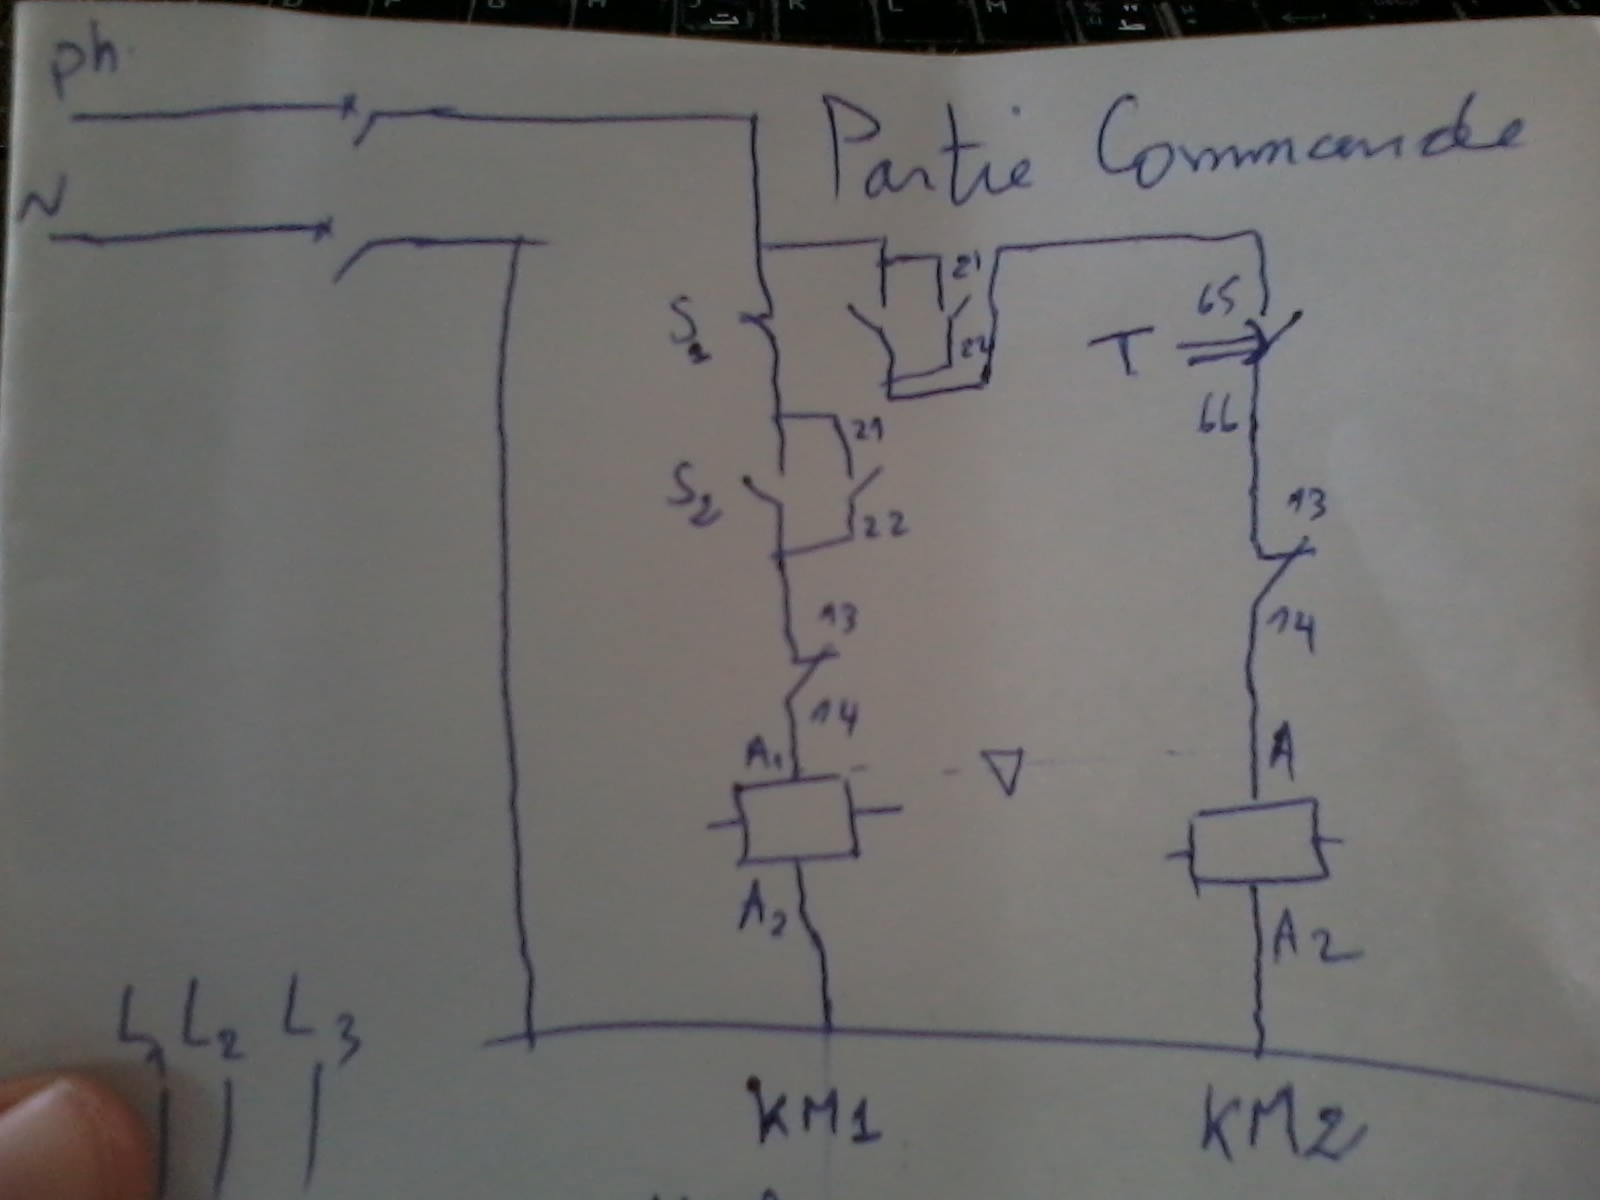 ph.
Partie Commande
N
21
S1
22
65
T
66
21
S2
22
13
14
13
14
A1
A
A2
A2
L1 L2 L3
KM1
KM2